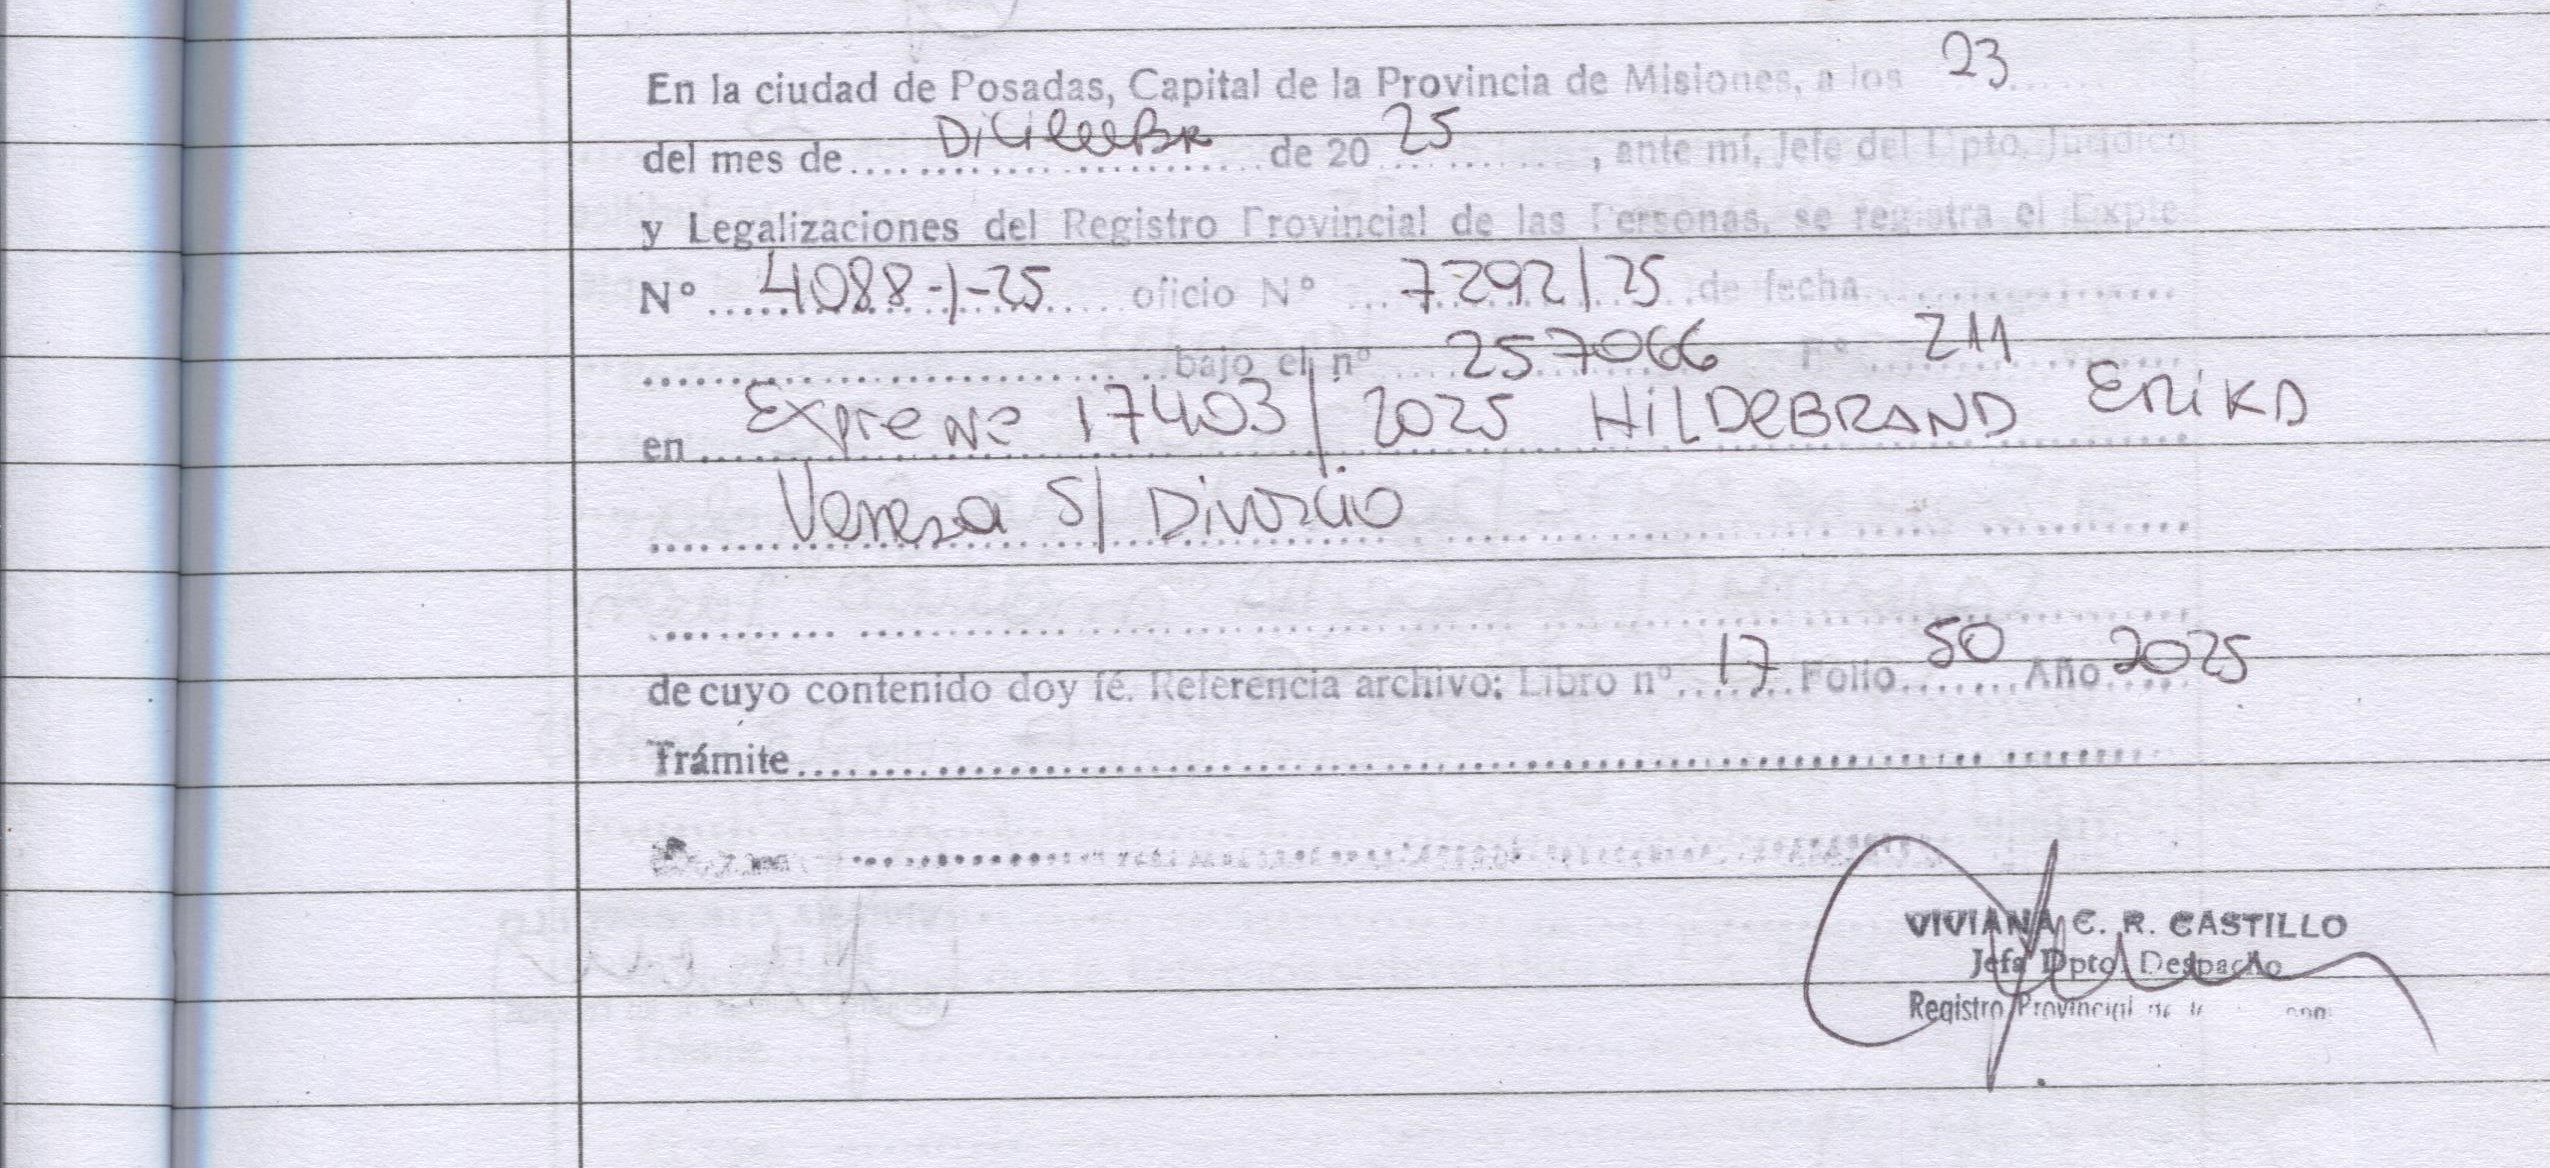 En la ciudad de Posadas, Capital de la Provincia de Misiones, a los 23
del mes de Diciembr de 20 25 , ante mí, Jefe del Dpto. Jurídico
y Legalizaciones del Registro Provincial de las Personas, se registra el Expte
N° 4088-1-25 oficio N° 7292/25 de fecha
bajo el n° 257066 F° 211
en Expte Nº 17403/2025 HILDEBRAND ERIKA
Veresa S/ Divorcio
de cuyo contenido doy fé. Referencia archivo: Libro n° 17 Folio 50 Año 2025
Trámite
VIVIANA C. R. CASTILLO
Jefa Dpto. Despacho
Registro Provincial de